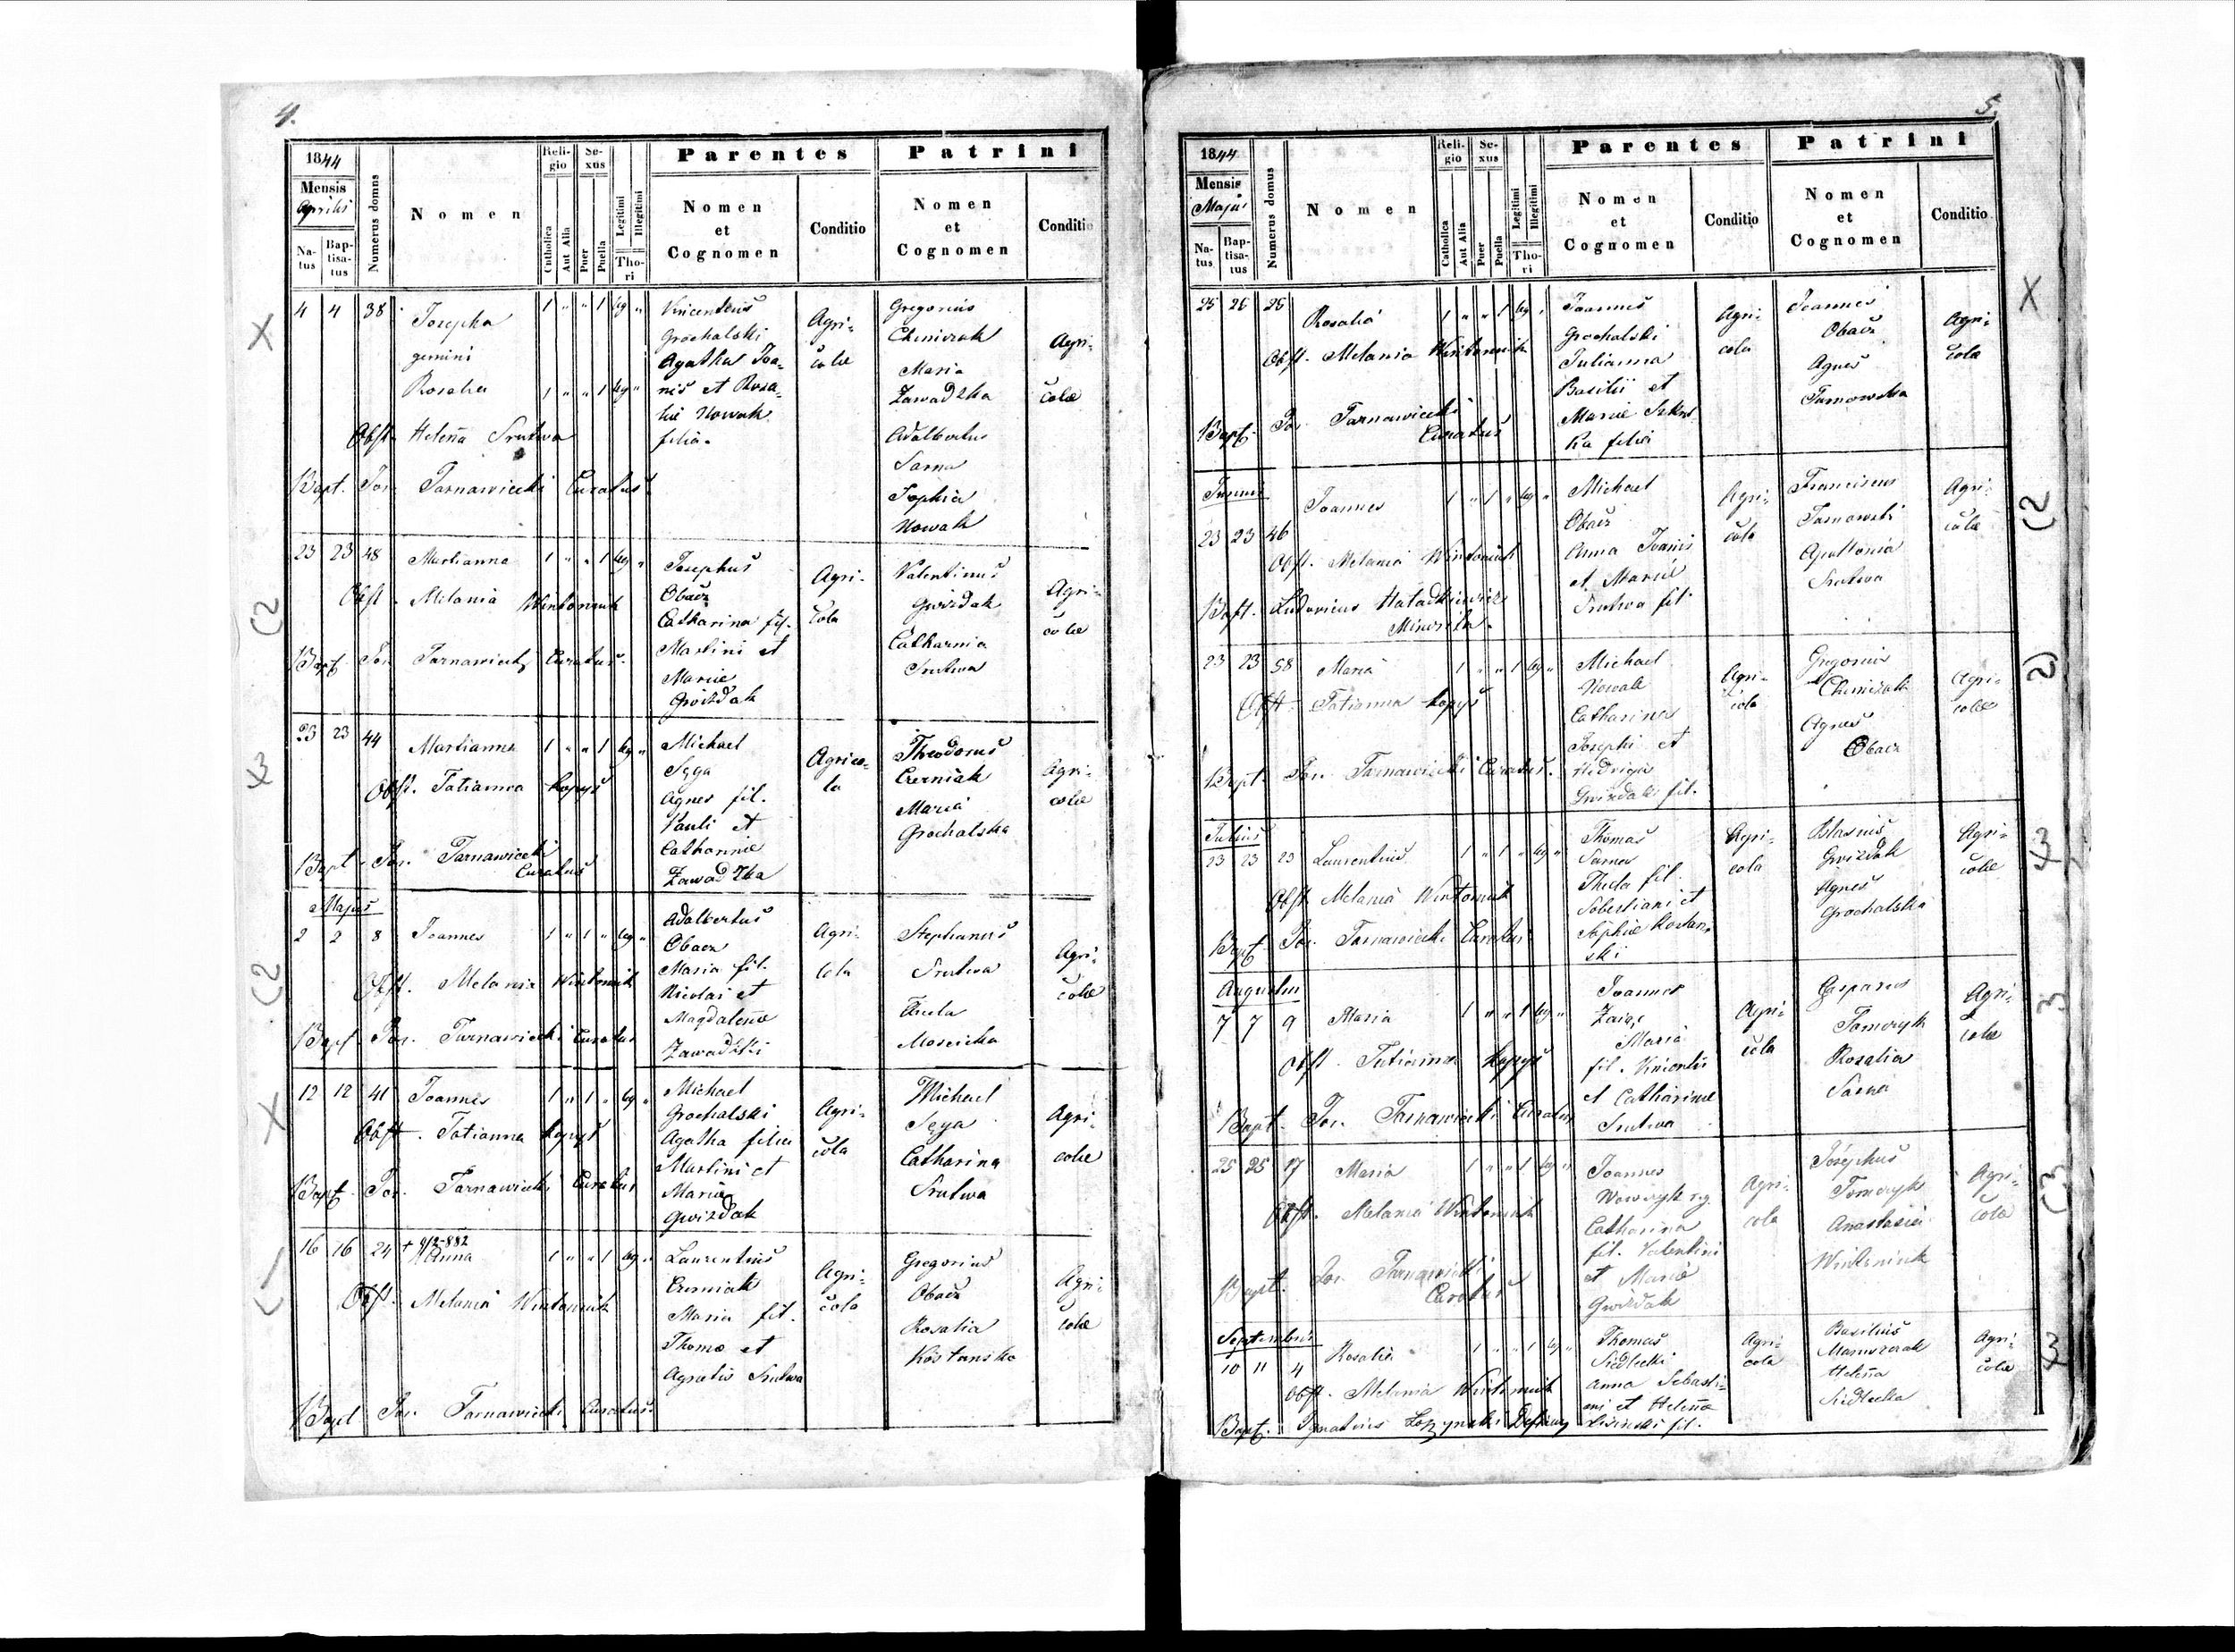 4.
1844
Mensis
Aprilis
Natus
Baptisatus
Numerus domus
Nomen
Religio
Catholica
Aut Alia
Sexus
Puer
Puella
Legitimi
Illegitimi
Thori
Parentes
Nomen et Cognomen
Conditio
Patrini
Nomen et Cognomen
Conditio
4 4 38 Josepha 1 " " 1 leg "
gemini
Rosalia 1 " " 1 leg "
Obst. Helena Srutwa
Bapt. Jos. Tarnawiecki Curatus
Vincentius
Grochalski
Agatha Joa-
nis et Rosa-
lie Nowak
filia.
Agri-
colae
Gregorius
Chmiczak
Maria
Zawadzka
Adalbertus
Sarna
Sophia
Nowak
Agri-
colae
23 23 48 Marianna 1 " " 1 leg "
Obst. Melania Wintoniuk
Bapt. Jos. Tarnawiecki Curatus.
Josephus
Obacz
Catharina fil.
Martini et
Mariae
Gwizdak
Agri-
cola
Valentinus
Gwizdak
Catharina
Srutwa
Agri-
colae
23 23 44 Marianna 1 " " 1 leg "
Obst. Tatianna Kopys
Bapt. Jos. Tarnawiecki
Curatus
Michael
Sęga
Agnes fil.
Pauli et
Catharinae
Zawadzka
Agrico-
la
Theodorus
Czerniak
Maria
Grochalska
Agri-
colae
Majus
2 2 8 Joannes 1 " 1 " leg "
Obst. Melania Wintoniuk
Bapt. Jos. Tarnawiecki Curatus
Adalbertus
Obacz
Maria fil.
Nicolai et
Magdalenae
Zawadzki
Agri-
cola
Stephanus
Srutwa
Thecla
Moscicka
Agri-
colae
12 12 41 Joannes 1 " 1 " leg "
Obst. Tatianna Kopys
Bapt. Jos. Tarnawiecki Curatus
Michael
Grochalski
Agatha filia
Martini et
Mariae
Gwizdak
Agri-
cola
Michael
Sęga
Catharina
Srutwa
Agri-
colae
16 16 24 Anna 1 " " 1 leg "
Obst. Melania Wintoniuk
Bapt. Jos. Tarnawiecki Curatus.
Laurentius
Czerniak
Maria fil.
Thomae et
Agnetis Srutwa
Agri-
cola
Gregorius
Obacz
Rosalia
Kostanska
Agri-
colae
5.
1844
Mensis
Majus
Natus
Baptisatus
Numerus domus
Nomen
Religio
Catholica
Aut Alia
Sexus
Puer
Puella
Legitimi
Illegitimi
Thori
Parentes
Nomen et Cognomen
Conditio
Patrini
Nomen et Cognomen
Conditio
25 26 25 Rosalia 1 " " 1 leg "
Obst. Melania Wintoniuk
Bapt. Jos. Tarnawiecki
Curatus
Joannes
Grochalski
Julianna
Basilii et
Mariae
filia
Agri-
cola
Joannes
Obacz
Agnes
Tarnowska
Agri-
colae
Junius
23 23 46 Joannes 1 " 1 " leg "
Obst. Melania Wintoniuk
Bapt. Ludovicus Minorita.
Michael
Obacz
Anna Joanis
et Mariae
Srutwa fil.
Agri-
cola
Franciscus
Tarnowski
Apollonia
Srutwa
Agri-
colae
23 23 58 Maria 1 " " 1 leg "
Obst. Tatianna Kopys
Bapt. Jos. Tarnawiecki Curatus.
Michael
Nowak
Catharina
Josephi et
Hedvigis
Gwizdak fil.
Agri-
cola
Gregorius
Chmiczak
Agnes
Obacz
Agri-
colae
Julius
23 23 23 Laurentius 1 " 1 " leg "
Obst. Melania Wintoniuk
Bapt. Jos. Tarnawiecki Curatus
Thomas
Sarna
Thecla fil.
Sebastiani et
Sophiae Kostan-
ski
Agri-
cola
Blasius
Gwizdak
Agnes
Grochalska
Agri-
colae
Augustus
7 7 9 Maria 1 " " 1 leg "
Obst. Tatianna Kopys
Bapt. Jos. Tarnawiecki Curatus
Joannes
Zając
Maria
fil. Vincentii
et Catharinae
Srutwa
Agri-
cola
Gasparus
Tomczyk
Rosalia
Sarna
Agri-
colae
25 25 17 Maria 1 " " 1 leg "
Obst. Melania Wintoniuk
Bapt. Jos. Tarnawiecki
Curatus
Joannes
Wawczyk
Catharina
fil. Valentini
et Maria
Gwizdak
Agri-
cola
Josephus
Tomczyk
Anastasia
Wintoniuk
Agri-
colae
September
10 11 4 Rosalia 1 " " 1 leg "
Obst. Melania Wintoniuk
Bapt. Ignatius Łozynski
Thomas
Siedlecki
Anna Sebasti-
ani et Helena
fil.
Agri-
cola
Basilius
Helena
Siedlecka
Agri-
colae